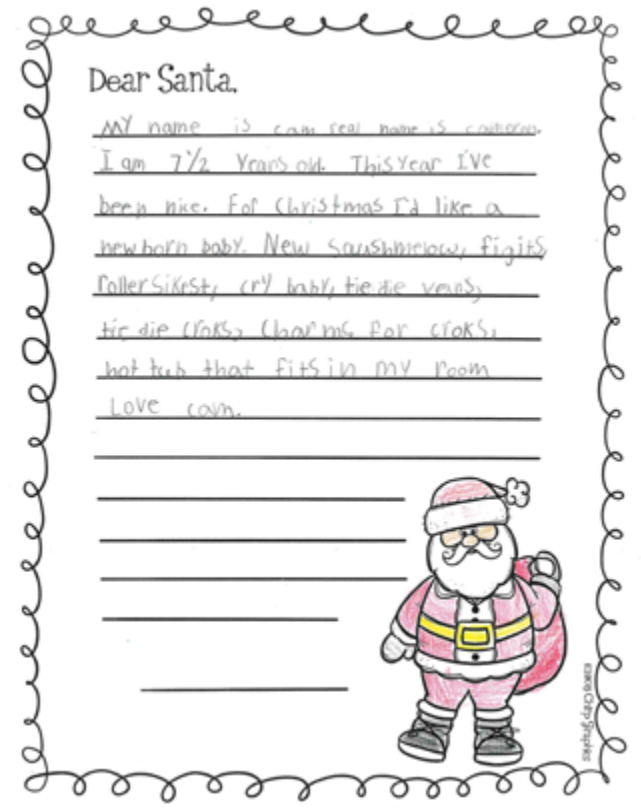 Dear Santa,
MY name is cam real name is cameron.
I am 7 1/2 Years old. This year I've
been nice. For Christmas I'd like a
newborn baby. New Saushmelow, figits,
rollersikest, cry baby, tie die vans,
tie die croks, Charms for croks,
hot tub that fits in my room
Love cam.